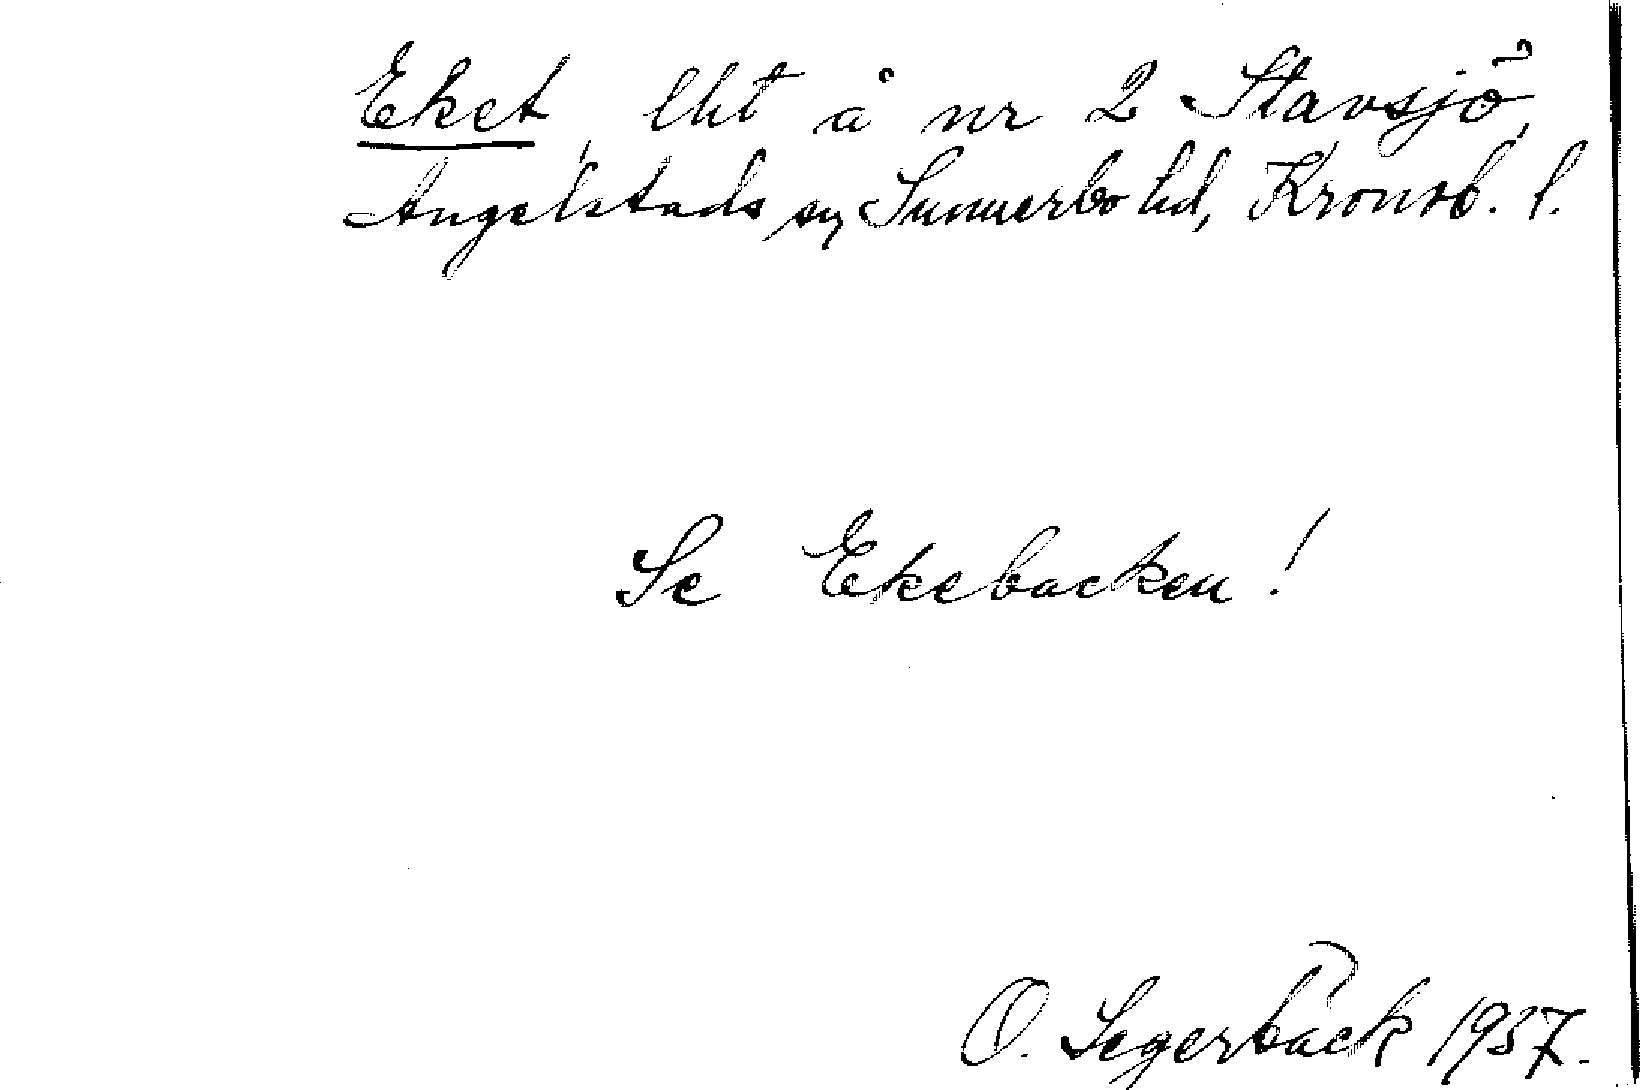 Eket, lht å nr 2 Stavsjö,
Angelstads sn, Sunnerbo hd, Kronob. l.
Se Ekebacken!
O. Segerbäck 1937.